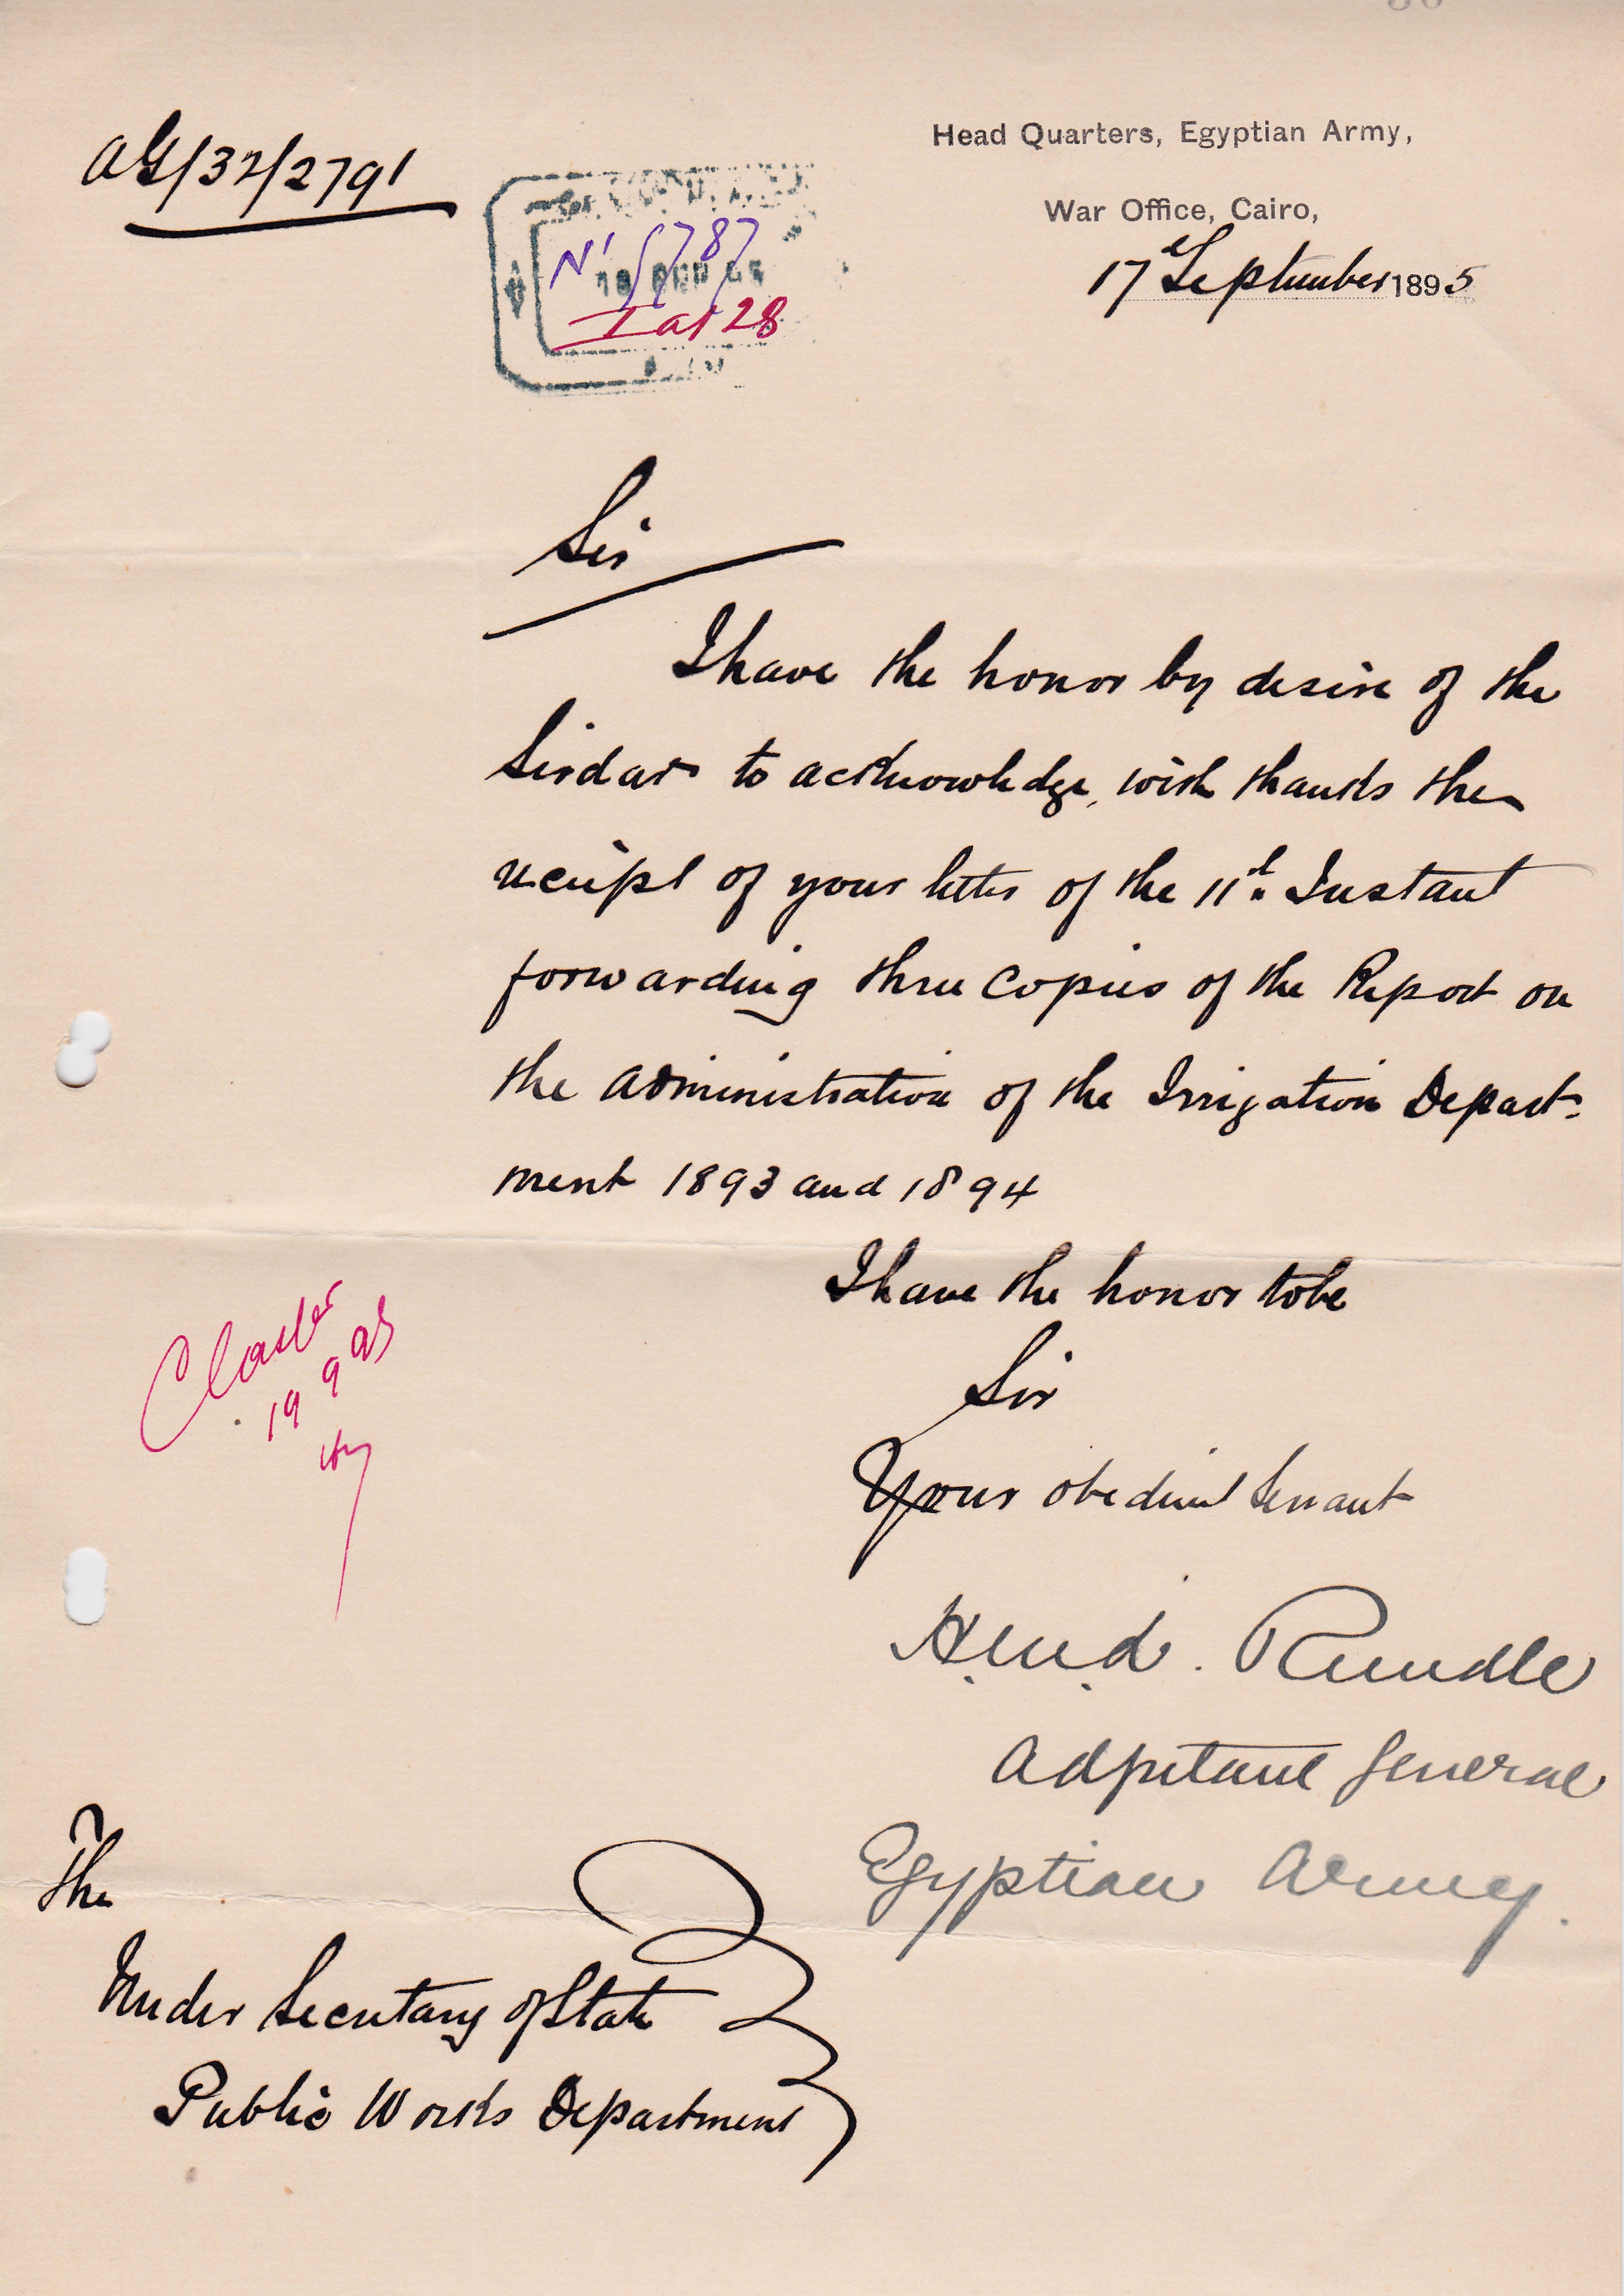 AG/32/2791
Head Quarters, Egyptian Army,
War Office, Cairo,
17 September 1895
I a 28
Sir
I have the honor by desire of the
Sirdar to acknowledge, with thanks the
receipt of your letter of the 11th Instant
forwarding three Copies of the Report on
the Administration of the Irrigation Depart-
ment 1893 and 1894
I have the honor to be
Sir
Your obedient Servant
19 9 95
Rundle
Adjutant General
Egyptian Army.
The
Under Secretary of State
Public Works Department